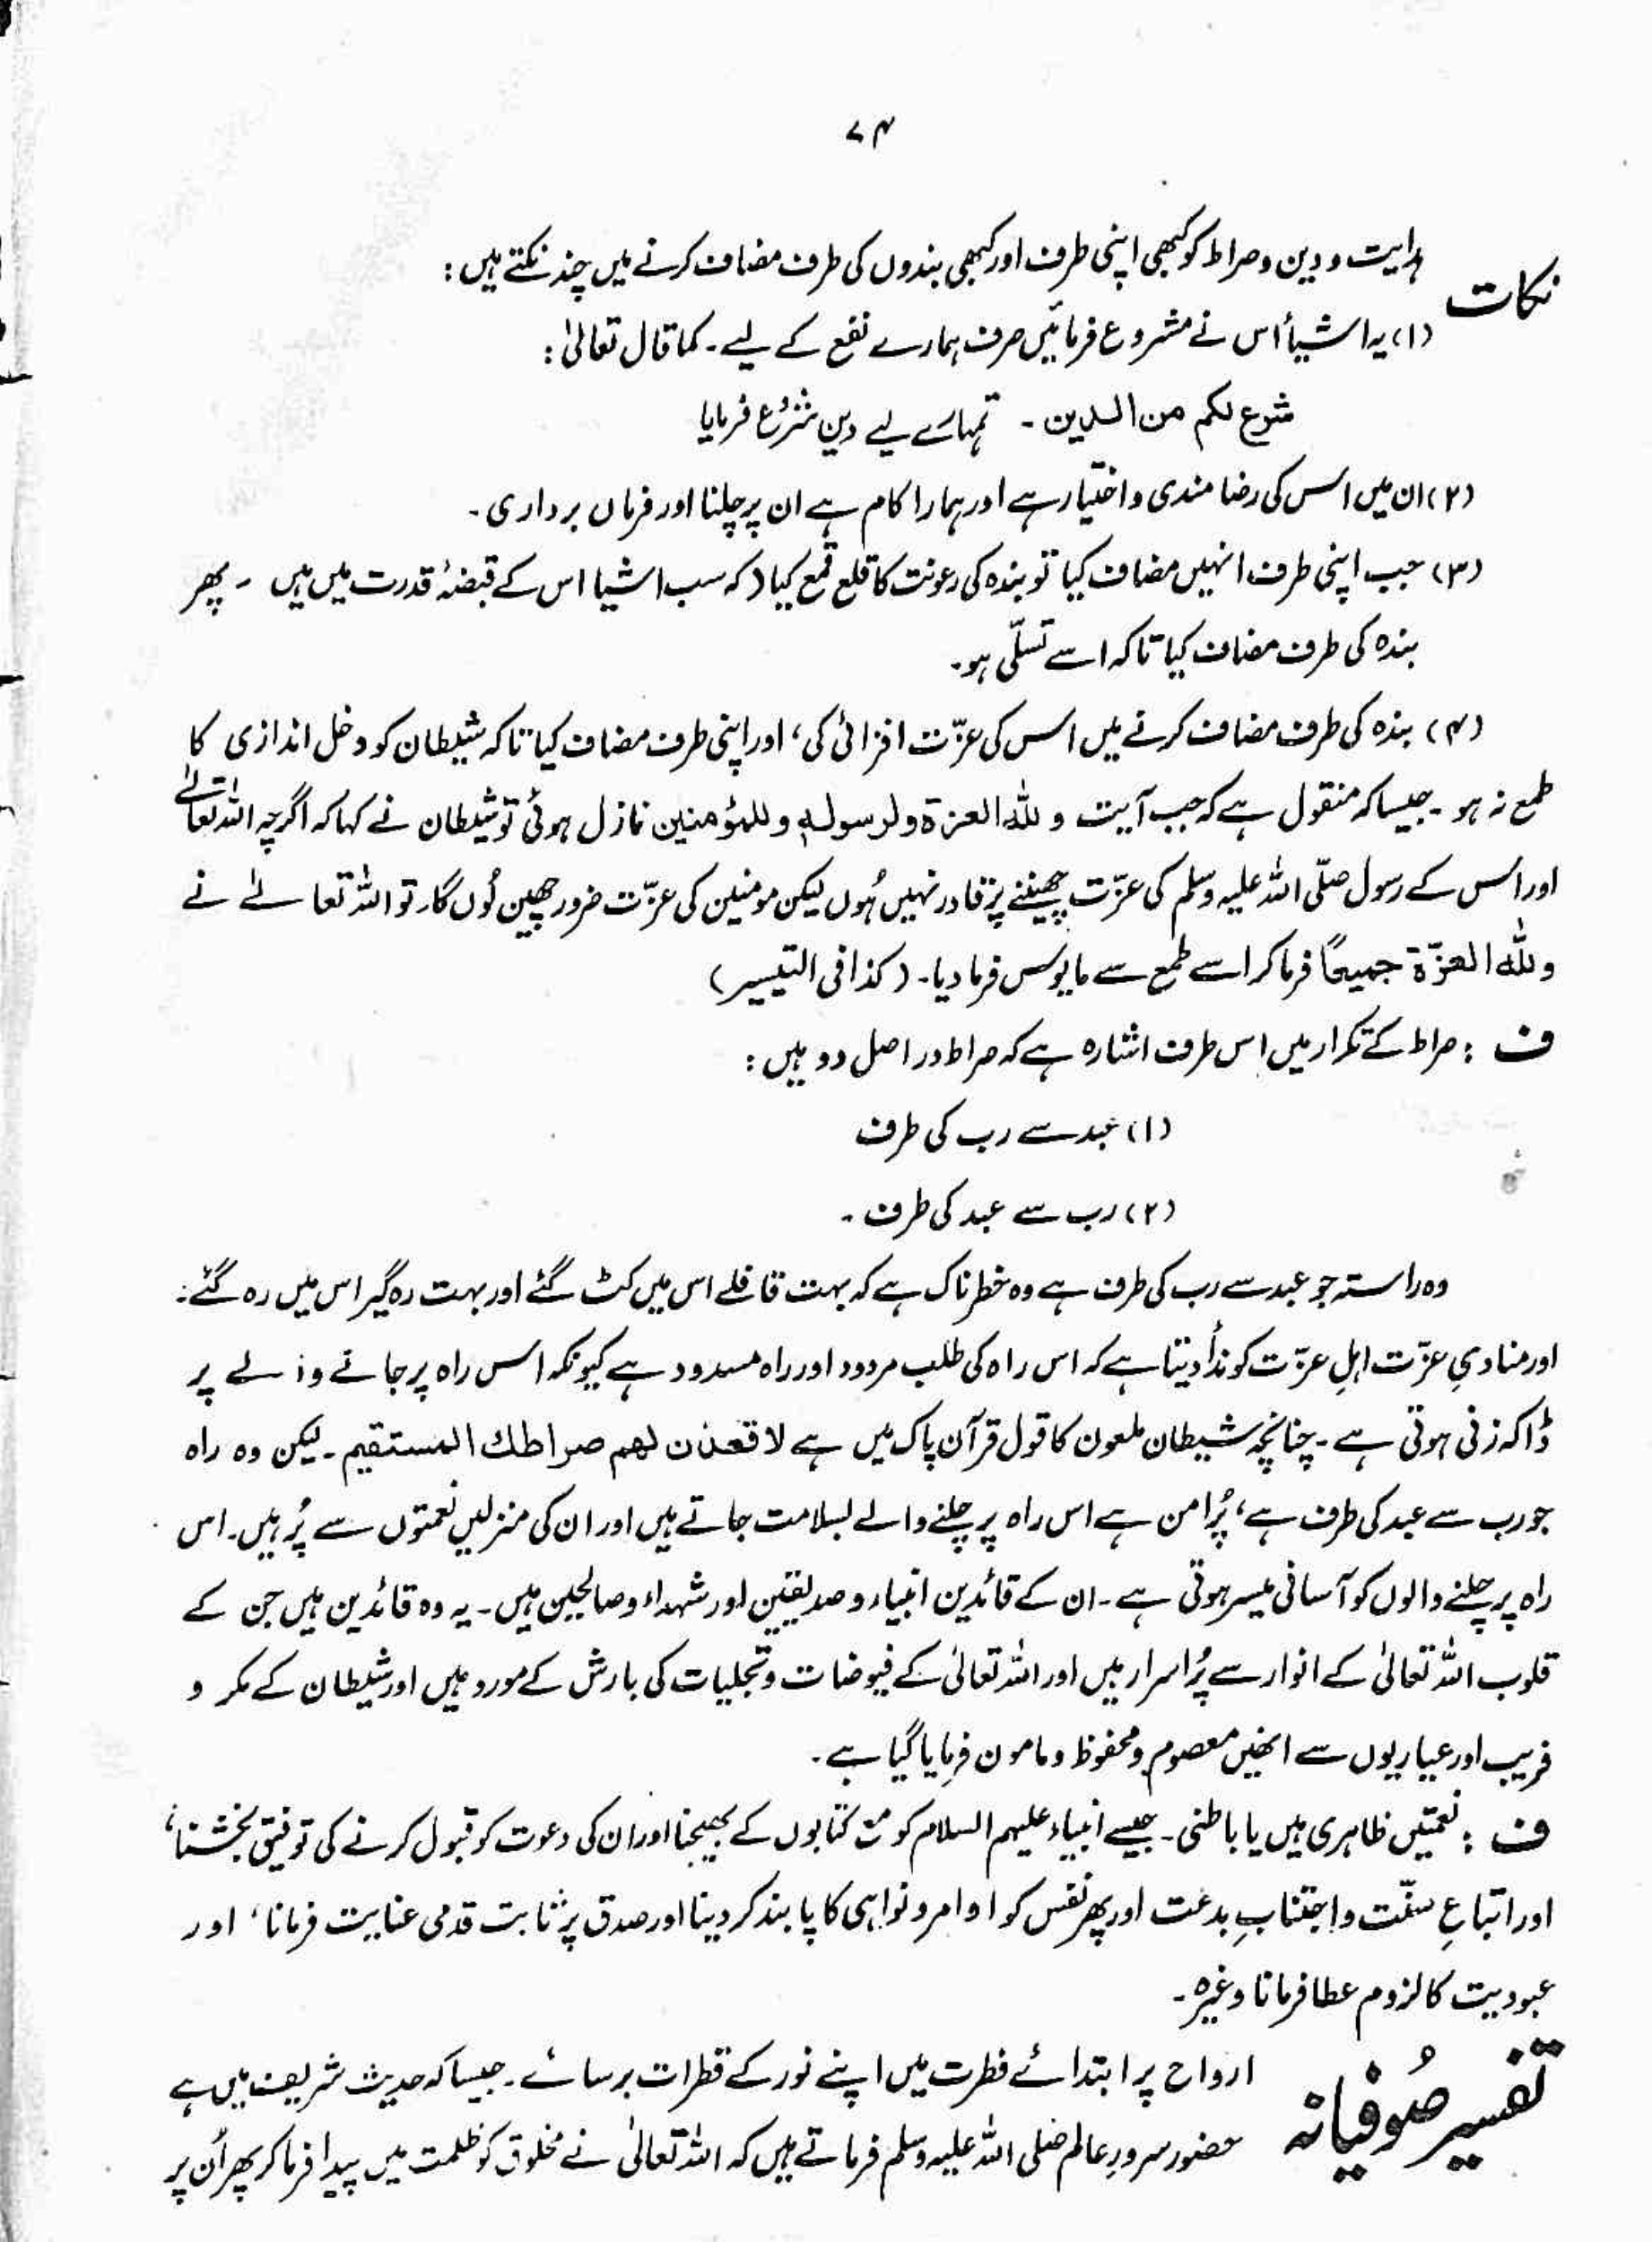 ۷۴
نکات
ہدایت و دین و صراط کو کبھی اپنی طرف اور کبھی بندوں کی طرف مضاف کرنے میں چند نکتے ہیں :
(۱) یہ اشیأ اس نے مشروع فرمائیں صرف ہمارے نفع کے لیے ۔ کما قال تعالیٰ :
شرع لکم من الدین ۔ تمہارے لیے دین مشروع فرمایا
(۲) ان میں اس کی رضا مندی و اختیار ہے اور ہمارا کام ہے ان پر چلنا اور فرماں برداری ۔
(۳) جب اپنی طرف انہیں مضاف کیا تو بندہ کی رعونت کا قلع قمع کیا (کہ سب اشیا اس کے قبضۂ قدرت میں ہیں ۔ پھر
بندہ کی طرف مضاف کیا تاکہ اسے تسلّی ہو۔
(۴) بندہ کی طرف مضاف کرنے میں اس کی عزّت افزائی کی، اور اپنی طرف مضاف کیا تاکہ شیطان کو دخل اندازی کا
طمع نہ ہو ۔ جیسا کہ منقول ہے کہ جب آیت و للہ العزۃ ولرسولہٖ و للمؤمنین نازل ہوئی تو شیطان نے کہا کہ اگرچہ اللہ تعالےٰ
اور اس کے رسول صلّی اللہ علیہ وسلم کی عزّت چھیننے پر قادر نہیں ہُوں لیکن مومنین کی عزّت ضرور چھین لُوں گا۔ تو اللہ تعالےٰ نے
وللہ العزّۃ جمیعًا فرما کر اسے طمع سے مایوس فرما دیا ۔ (کذا فی التیسیر)
ف : صراط کے تکرار میں اس طرف اشارہ ہے کہ صراط در اصل دو ہیں :
(۱) عبد سے رب کی طرف
(۲) رب سے عبد کی طرف ۔
وہ راستہ جو عبد سے رب کی طرف ہے وہ خطرناک ہے کہ بہت قافلے اس میں کٹ گئے اور بہت رہ گیر اس میں رہ گئے :
اور منادیِ عزّت اہلِ عزّت کو ندأ دیتا ہے کہ اس راہ کی طلب مردود اور راہ مسدود ہے کیونکہ اس راہ پر جانے والے پر
ڈاکہ زنی ہوتی ہے ۔ چنانچہ شیطان ملعون کا قول قرآن پاک میں ہے لاقعدن لھم صراطك المستقیم ۔ لیکن وہ راہ
جو رب سے عبد کی طرف ہے، پُر امن ہے اس راہ پر چلنے والے بسلامت جاتے ہیں اور ان کی منزلیں نعمتوں سے پُر ہیں ۔ اس
راہ پر چلنے والوں کو آسانی میسر ہوتی ہے ۔ ان کے قائدین انبیاء و صدیقین اور شہداء و صالحین ہیں ۔ یہ وہ قائدین ہیں جن کے
قلوب اللہ تعالیٰ کے انوار سے پُر اسرار ہیں اور اللہ تعالیٰ کے فیوضات و تجلیات کی بارش کے مورد ہیں اور شیطان کے مکر و
فریب اور عیاریوں سے انھیں معصوم و محفوظ و مامون فرمایا گیا ہے ۔
ف : نعمتیں ظاہری ہیں یا باطنی ۔ جیسے انبیاء علیہم السلام کو مع کتابوں کے بھیجنا اور ان کی دعوت کو قبول کرنے کی توفیق بخشنا،
اور اتباعِ سنّت و اجتنابِ بدعت اور پھر نفس کو اوامر و نواہی کا پابند کر دینا اور صدق پر ثابت قدمی عنایت فرمانا، اور
عبودیت کا لزوم عطا فرمانا وغیرہ ۔
تفسیر صُوفیانہ
ارواح پر ابتدائے فطرت میں اپنے نور کے قطرات برسائے ۔ جیسا کہ حدیث شریف میں ہے
حضور سرورِ عالم صلی اللہ علیہ وسلم فرماتے ہیں کہ اللہ تعالیٰ نے مخلوق کو ظلمت میں پیدا فرما کر پھر اُن پر